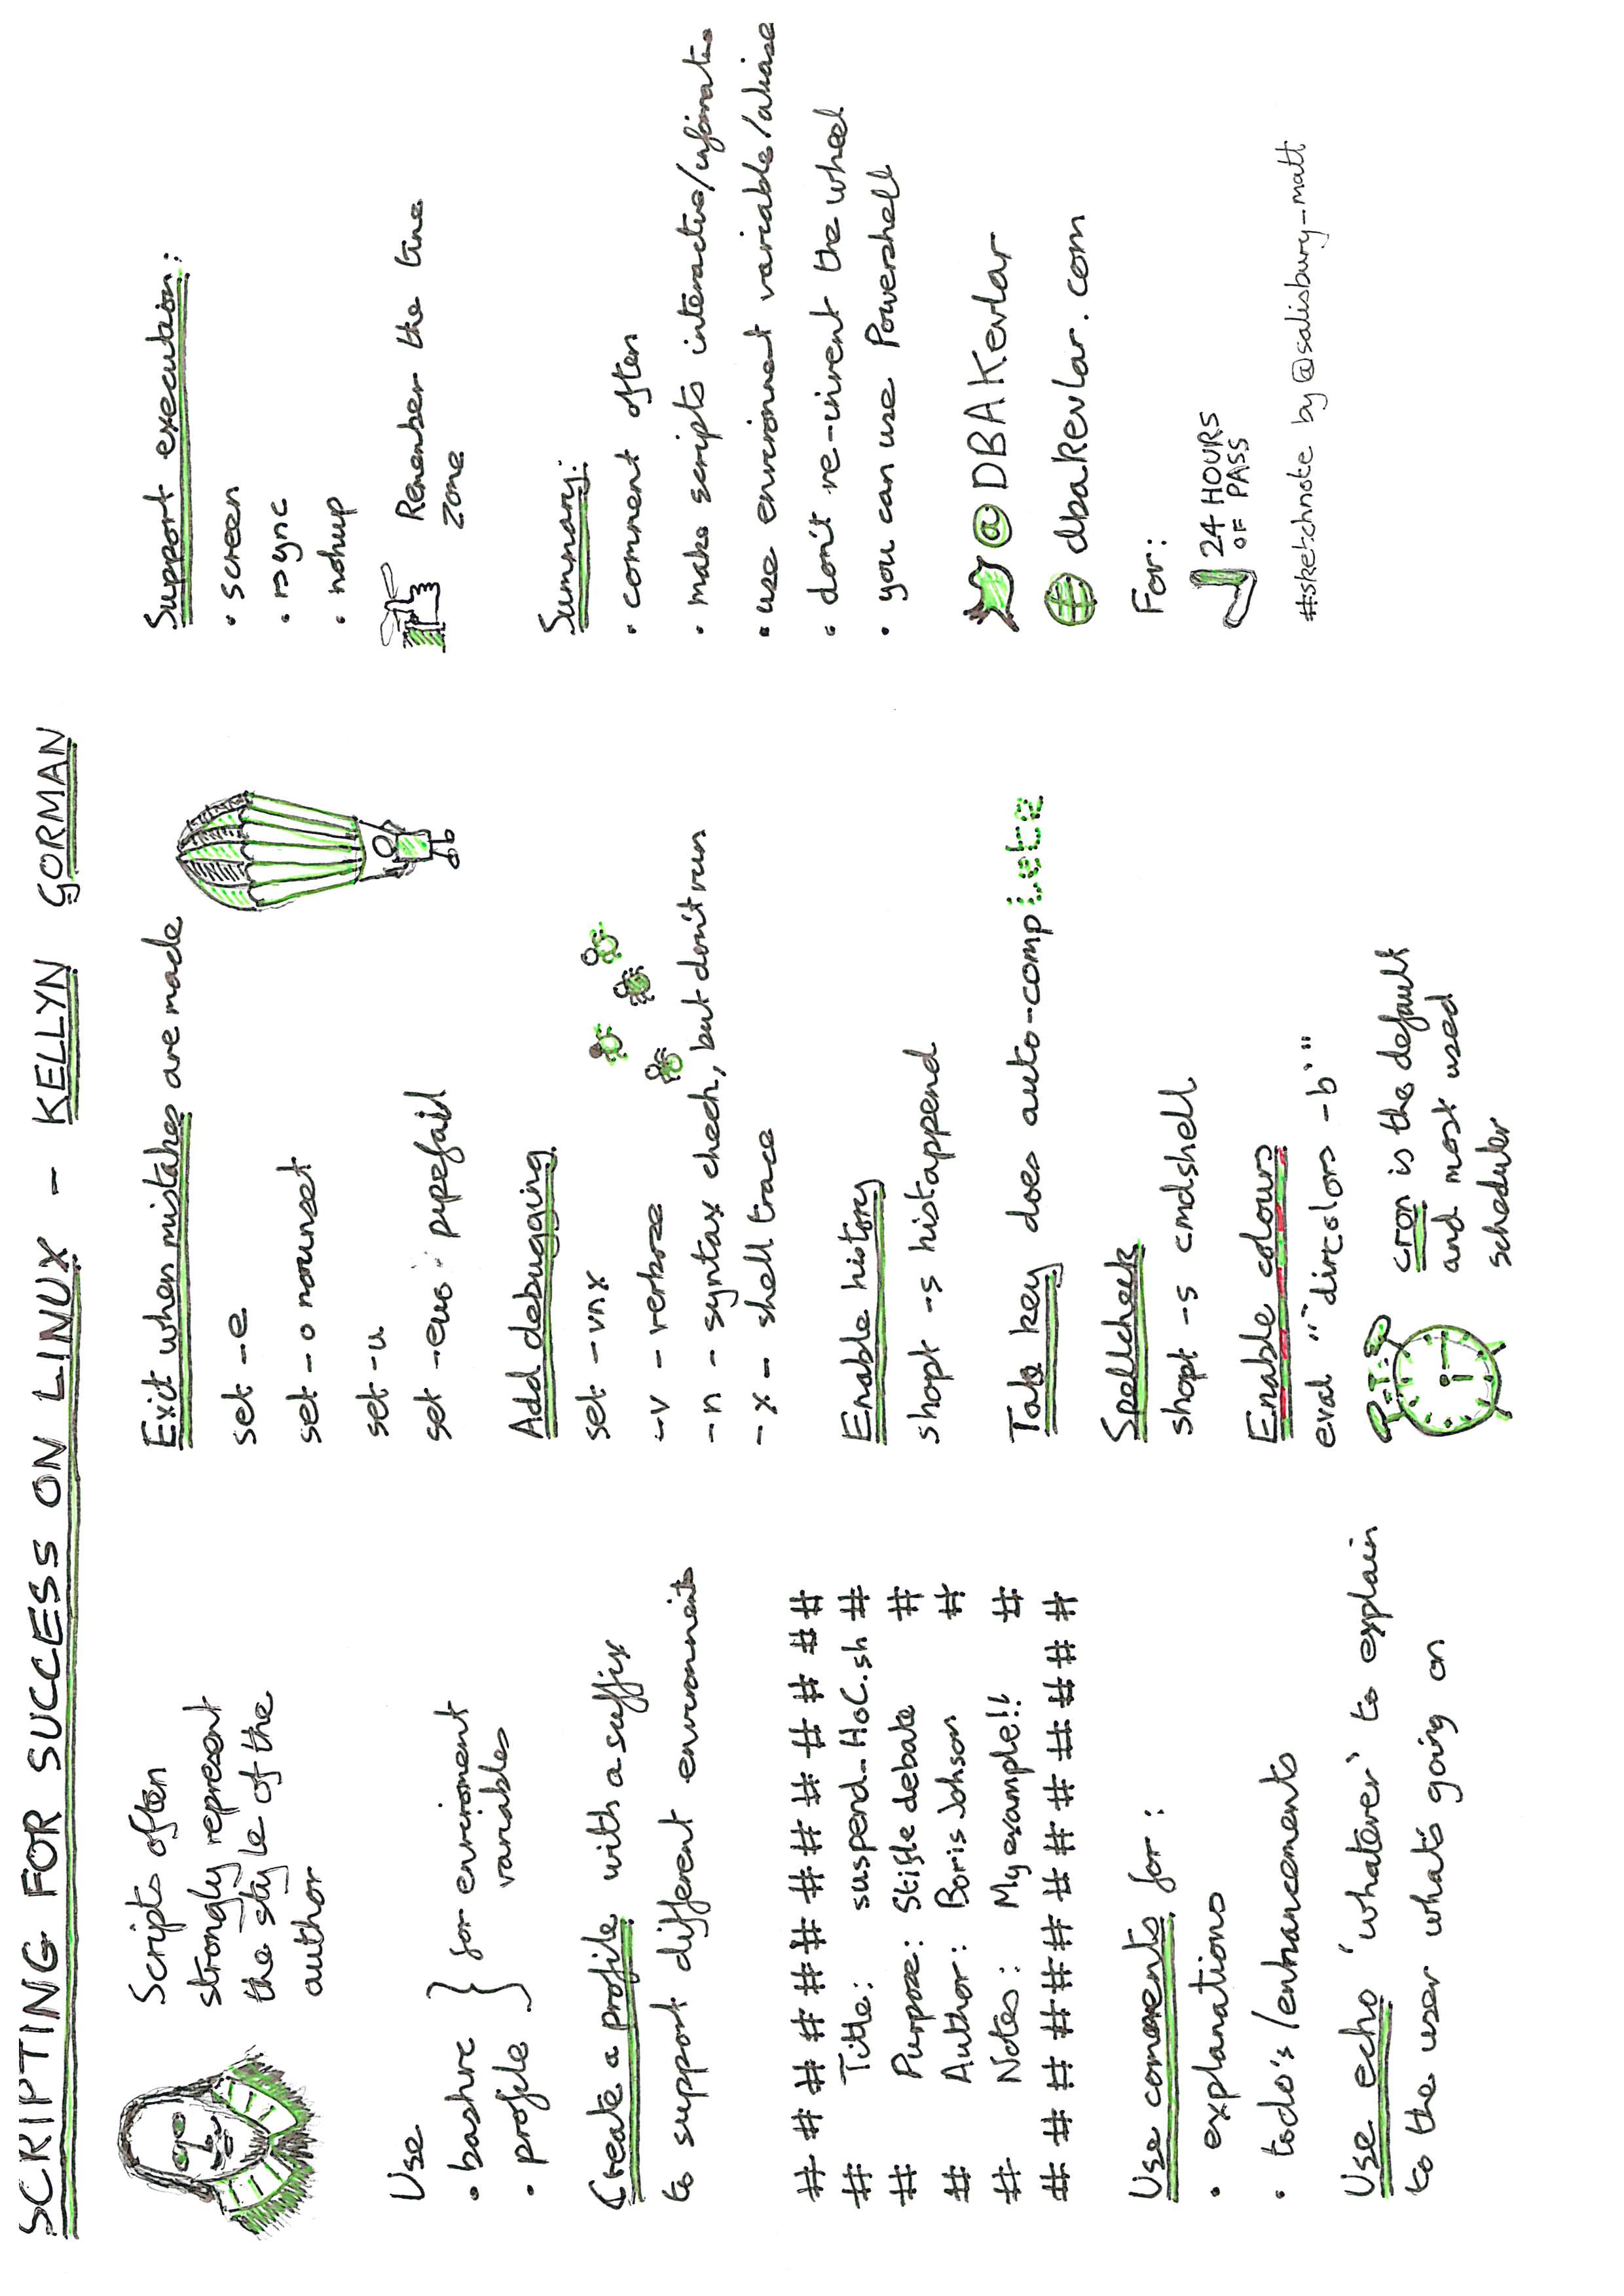 SCRIPTING FOR SUCCESS ON LINUX - KELLYN GORMAN
Scripts often
strongly represent
the style of the
author
Use
• bashrc
• profile
} for enviroment
variables
Create a profile with a suffix
to support different environments
# # # # # # # # # # # # #
# Title: suspend_HoC.sh #
# Purpose: Stifle debate #
# Author: Boris Johson #
# Notes: My example!! #
# # # # # # # # # # # # #
Use comments for :
• explanations
• todo's/enhancements
Use echo 'whatever' to explain
to the user what's going on
Exit when mistakes are made
set -e
set -o nounset
set -u
set -euo pipefail
Add debugging
set -vnx
-v - verbose
-n - syntax check, but don't run
-x - shell trace
Enable history
shopt -s histappend
Tab key does auto-complete
Spellcheck
shopt -s cmdshell
Enable colours
eval "`dircolors -b`"
cron is the default
and most used
scheduler
Support execution:
• screen
• rsync
• nohup
Remember the time
zone
Summary:
• comment often
• make scripts interactive/informative
• use environment variable/aliase
• don't re-invent the wheel
• you can use Powershell
@DBAKevlar
dbakevlar.com
For:
24 HOURS
OF PASS
#sketchnote by @salisbury_matt